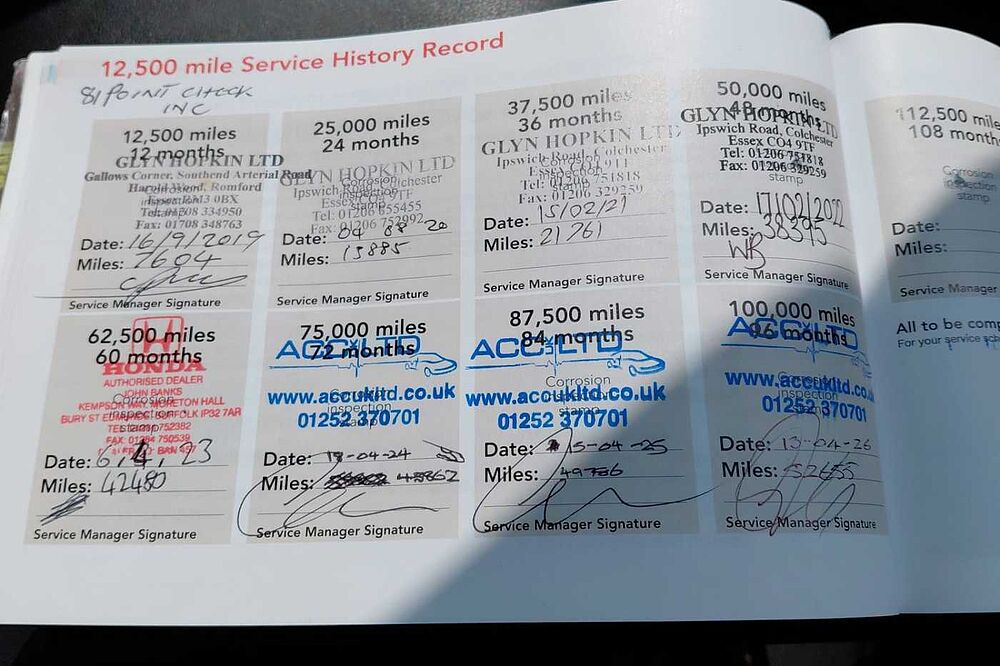 12,500 mile Service History Record
81 POINT CHECK
INC
12,500 miles
12 months
GLYN HOPKIN LTD
Gallows Corner, Southend Arterial Road
Harold Wood, Romford
Essex RM3 0BX
Tel: 01708 334950
Fax: 01708 348763
Date: 16/9/2019
Miles: 7604
Service Manager Signature
25,000 miles
24 months
GLYN HOPKIN LTD
Ipswich Road, Colchester
Corrosion
inspection
Essex
Tel: 01206 855455
Fax: 01206 752992
Date: 04 08 20
Miles: 15885
Service Manager Signature
37,500 miles
36 months
GLYN HOPKIN LTD
Ipswich Road, Colchester
Corrosion
Tel: 01206 751818
Fax: 01206 329259
Date: 15/02/21
Miles: 21761
Service Manager Signature
50,000 miles
48 months
GLYN HOPKIN LTD
Ipswich Road, Colchester
Essex CO4 9TF
Tel: 01206 751818
Fax: 01206 329259
stamp
Date: 17/02/2022
Miles: 38395
WB
Service Manager Signature
112,500 miles
108 months
Corrosion
inspection
stamp
Date:
Miles:
Service Manager
62,500 miles
60 months
HONDA
AUTHORISED DEALER
JOHN BANKS
KEMPSON WAY, MORETON HALL
BURY ST EDMUNDS, SUFFOLK IP32 7AR
Date: 6, 4, 23
Miles: 42480
Service Manager Signature
75,000 miles
72 months
ACC UK LTD
Corrosion
www.accukltd.co.uk
inspection
01252 370701
stamp
Date: -04-24
Miles: 45862
Service Manager Signature
87,500 miles
84 months
ACC UK LTD
Corrosion
www.accukltd.co.uk
inspection
01252 370701
stamp
Date: 15-04-25
Miles: 49766
Service Manager Signature
100,000 miles
96 months
ACC UK LTD
www.accukltd.co.uk
01252 370701
Date: 13-04-26
Miles: 52655
Service Manager Signature
All to be comp
For your service sch